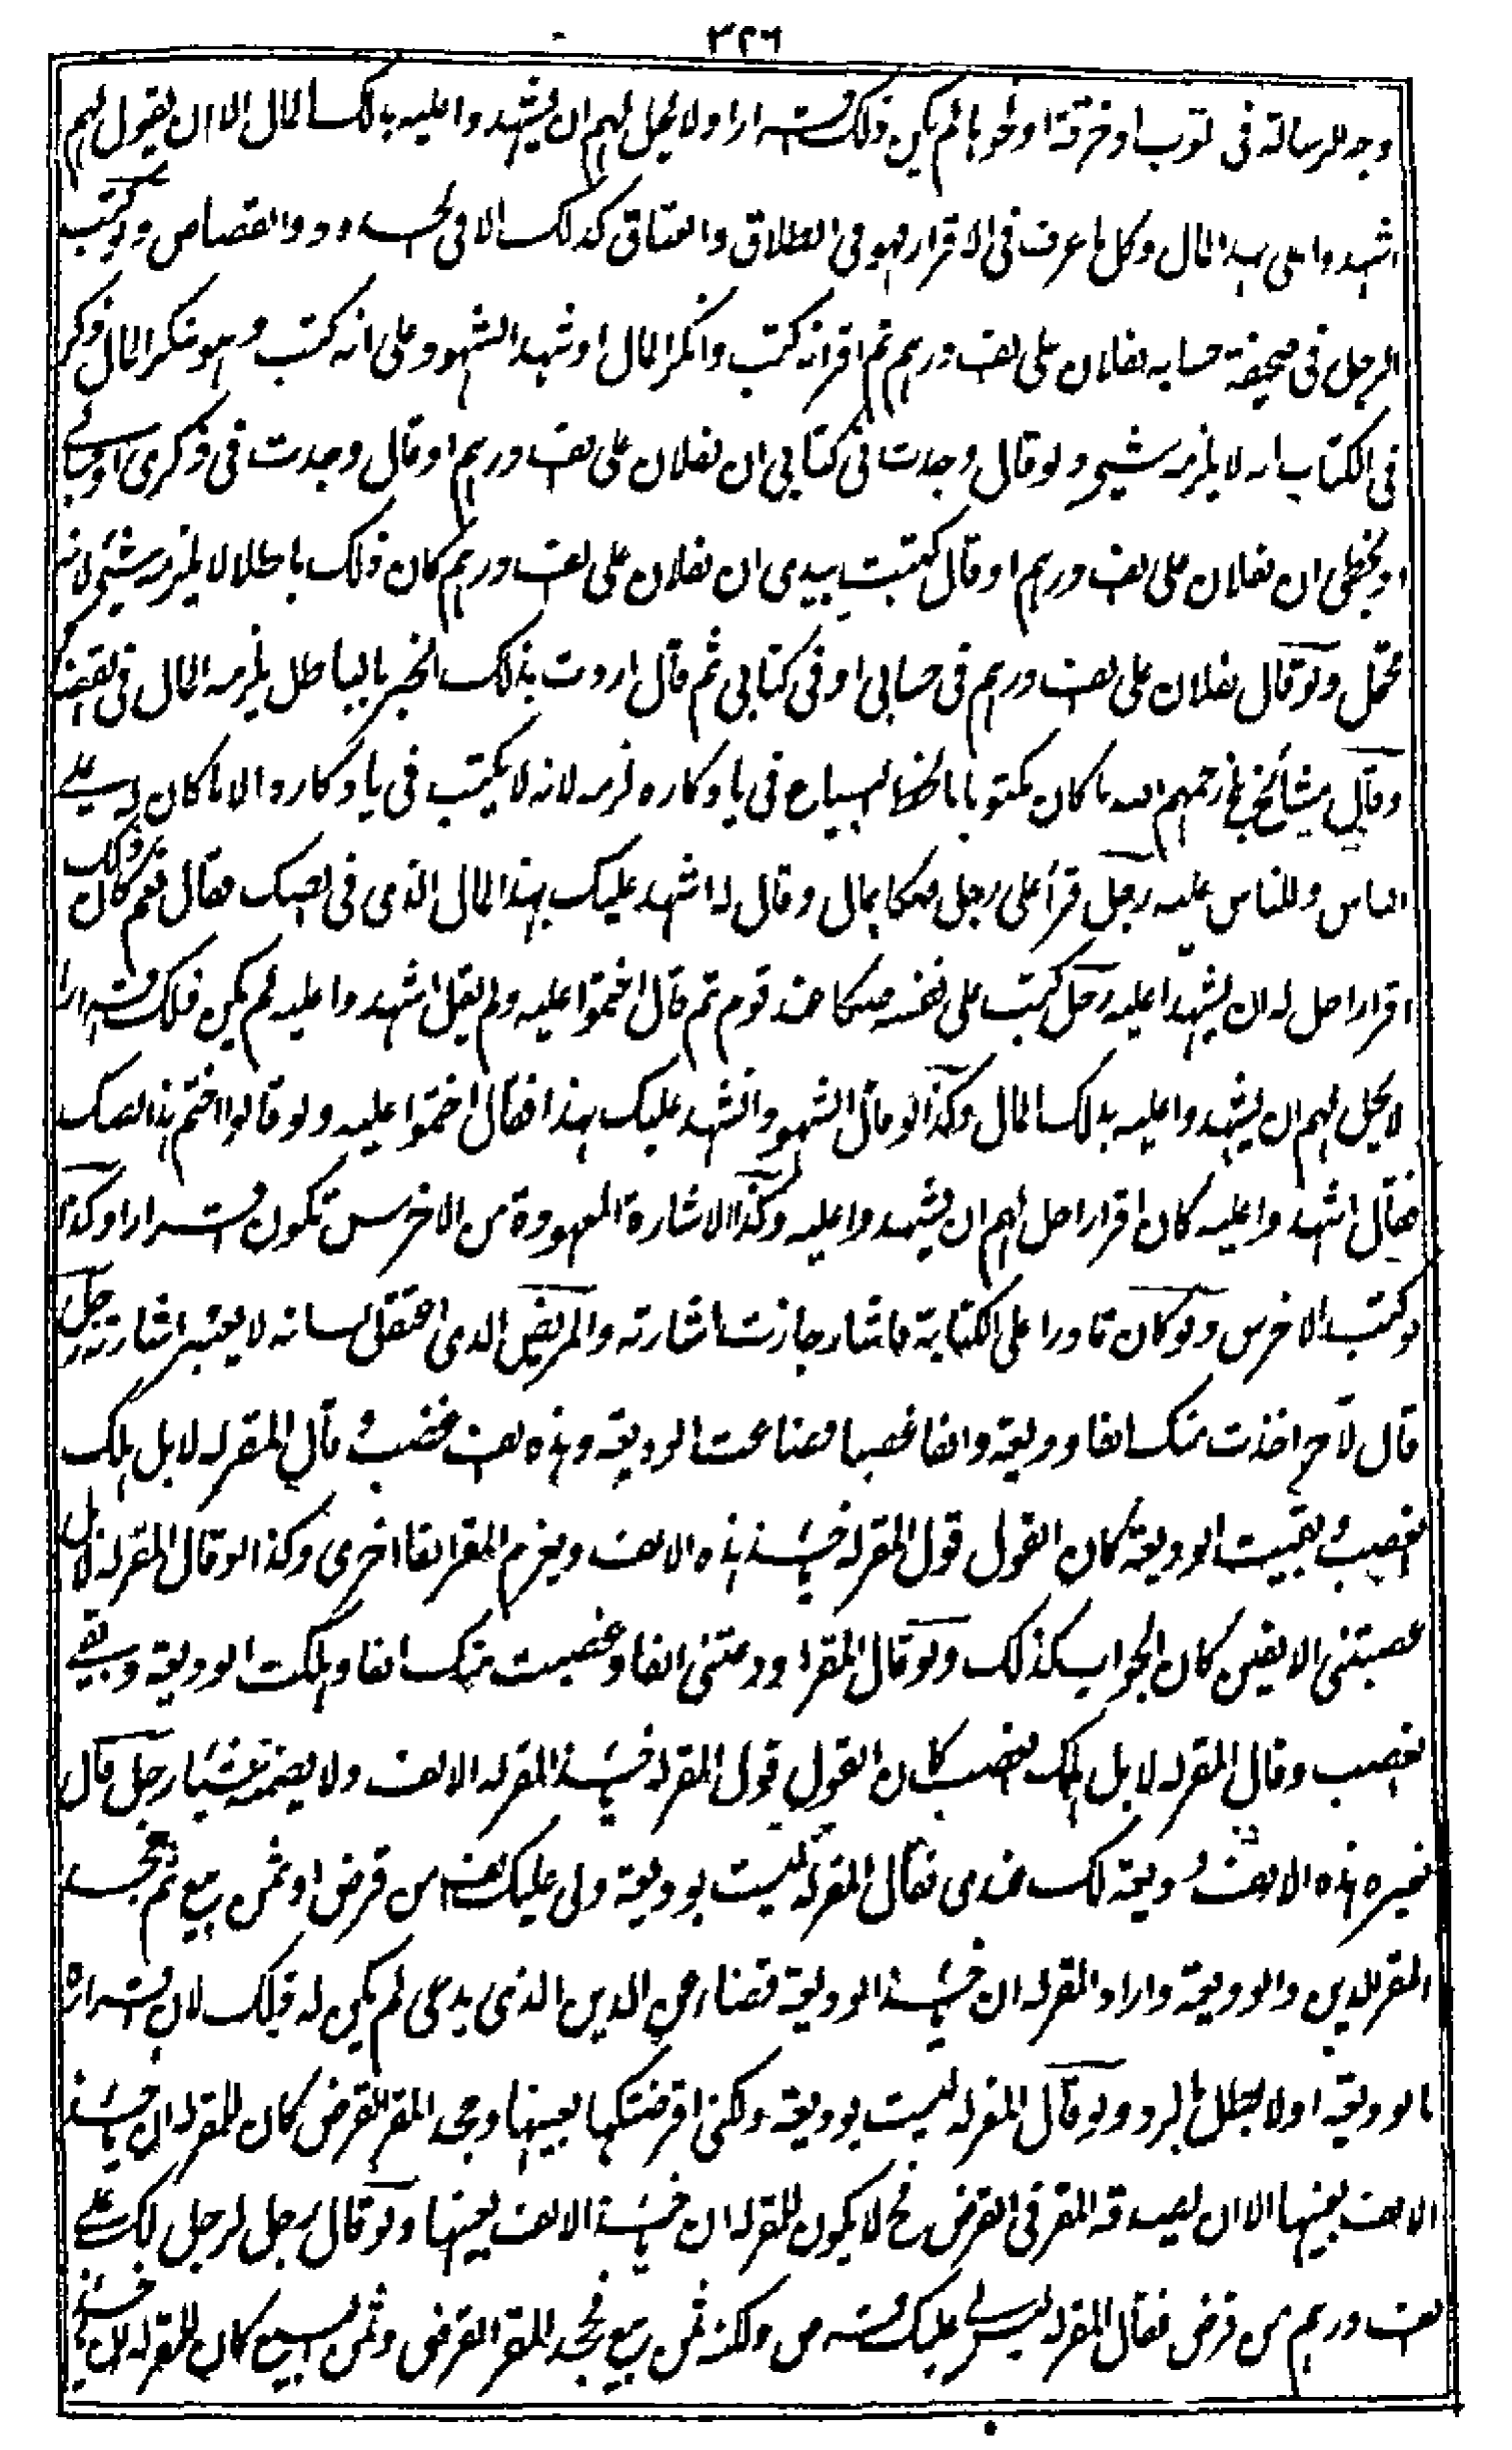 ٣٢٦
وجه الرسالة فى ثوب او خرقة او نحوها لم يكن ذلك اقرارا ولا يحل لهم ان يشهدوا عليه بذلك المال الا ان يقول لهم
اشهدوا على بهذا المال وكل ما عرف فى الاقرار فهو فى الطلاق والعتاق كذلك الا فى الحدود والقصاص ولو كتب
الرجل فى صحيفة حسابه لفلان على الف درهم ثم اقر انه كتب وانكر المال او شهد الشهود على انه كتب وهو منكر المال ذكر
فى الكتاب انه لا يلزمه شىء ولو قال وجدت فى كتابى ان لفلان على الف درهم او قال وجدت فى ذكرى او حسابى
او بخطى ان لفلان على الف درهم او قال كتبت بيدى ان لفلان على الف درهم كان ذلك باطلا لا يلزمه شىء لانه
محتمل ولو قال لفلان على الف درهم فى حسابى او فى كتابى ثم قال اردت بذلك الخبر بالباطل يلزمه المال فى القضاء
وقال مشائخ بلخ رحمهم الله ما كان مكتوبا بالخط البياع فى يادكاره لزمه لانه لا يكتب فى يادكاره الا ما كان له على
الناس وللناس عليه رجل قرأ على رجل صكا بمال وقال له اشهد عليك بهذا المال الذى فى الصك فقال نعم كان ذلك
اقرارا حل له ان يشهد عليه رجل كتب على نفسه صكا عند قوم ثم قال اختموا عليه ولم يقل اشهدوا عليه لم يكن ذلك اقرارا
لا يحل لهم ان يشهدوا عليه بذلك المال وكذا لو قال الشهود انشهد عليك بهذا فقال اختموا عليه ولو قالوا اختم هذا الصك
فقال اشهدوا عليه كان اقرارا حل لهم ان يشهدوا عليه وكذا الاشارة المعهودة من الاخرس تكون اقرارا وكذا
لو كتب الاخرس ولو كان قادرا على الكتابة فاشار جازت اشارته والمريض الذى اعتقل لسانه لا يعتبر اشارته رجل
قال لآخر اخذت منك الفا وديعة والفا غصبا فضاعت الوديعة وهذه الف غصب وقال المقر له لا بل هلك
الغصب وبقيت الوديعة كان القول قول المقر له يأخذ هذه الالف ويغرم المقر الفا اخرى وكذا لو قال المقر له لا بل
غصبتنى الالفين كان الجواب كذلك ولو قال المقر اودعتنى الفا وغصبت منك الفا وهلكت الوديعة وبقى
الغصب وقال المقر له لا بل هلك الغصب كان القول قول المقر يأخذ المقر له الالف ولا يضمنه شيئا رجل قال
لغيره هذه الالف وديعة لك عندى فقال المقر له ليست بوديعة ولى عليك الف من قرض او ثمن بيع ثم جحد
المقر الدين والوديعة واراد المقر له ان يأخذ الوديعة قضاء عن الدين الذى يدعى لم يكن له ذلك لان اقراره
بالوديعة اولا بطل بالرد ولو قال المقر له ليست بوديعة ولكنى اقرضتكها بعينها وجحد المقر القرض كان للمقر له ان يأخذ
الالف بعينها الا ان يصدقه المقر فى القرض فح لا يكون للمقر له ان يأخذ الالف بعينها ولو قال رجل لرجل لك على
الف درهم من قرض فقال المقر له ليس لى عليك قرض ولكنه ثمن بيع فجحد المقر القرض وثمن المبيع كان للمقر له ان يأخذ